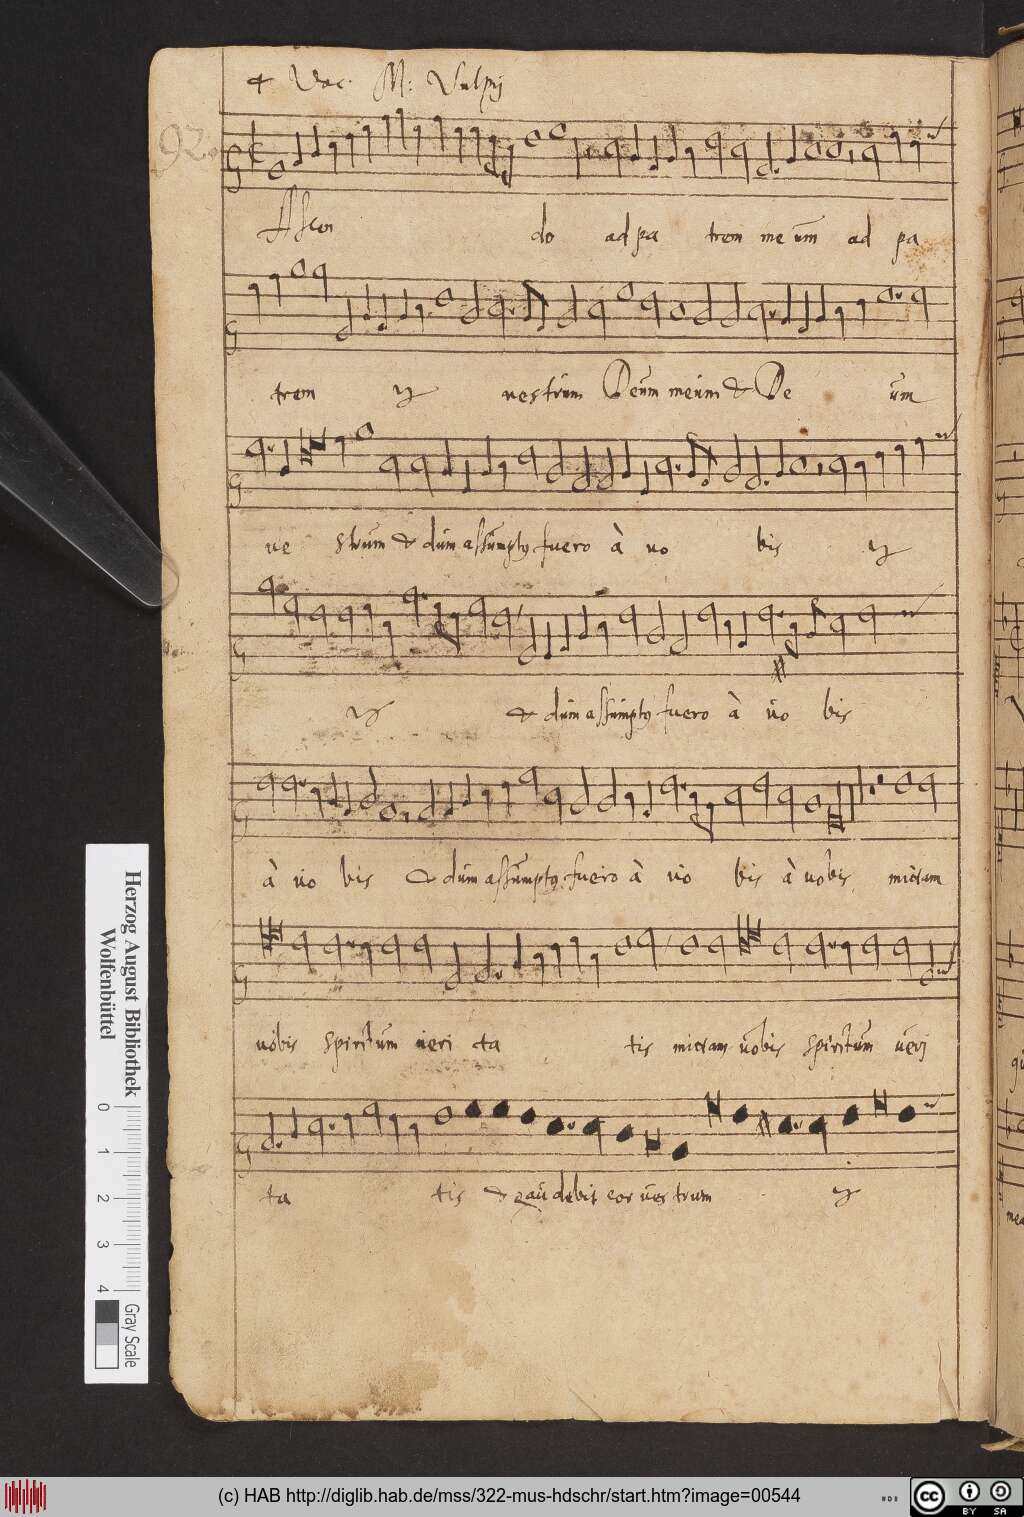 4 Voc. M: Vulpij
92.
Ascen do ad pa trem me um ad pa
trem vestrum Deum meum & De um
ve strum & dum assumptus fuero à vo bis
& dum assumptus fuero à vo bis
à vo bis & dum assumptus fuero à vo bis à vobis mittam
vobis spiritum veri ta tis mittam vobis spiritum veri
ta tis & gaudebit cor vestrum
Herzog August Bibliothek
Wolfenbüttel
0 1 2 3 4
Gray Scale
(c) HAB http://diglib.hab.de/mss/322-mus-hdschr/start.htm?image=00544
cc BY SA